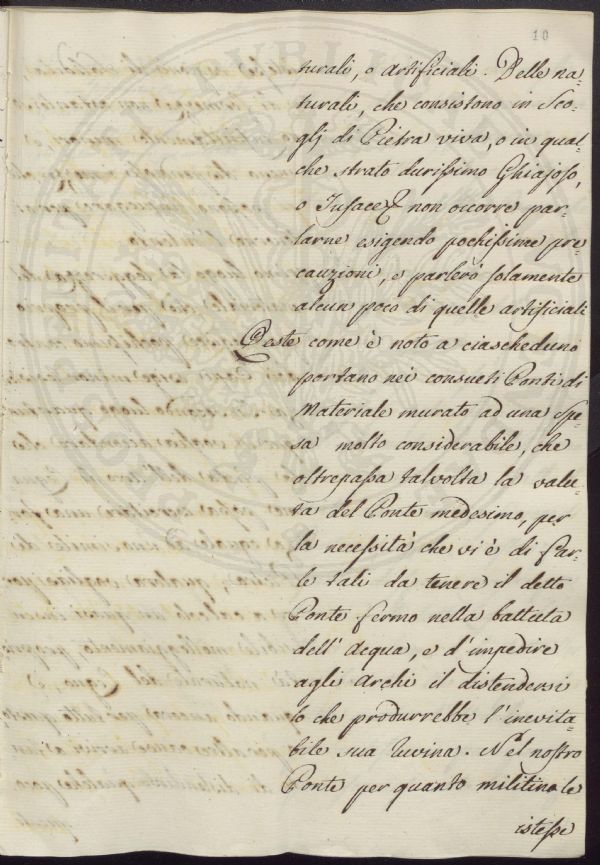 10
turali, o artificiali. Delle na=
turali, che consistono in Sco=
glj di Pietra viva, o in qual=
che strato durissimo Ghiajoso,
o Tufaceo non occorre par=
larne esigendo pochissime pre=
cauzioni, e parlerò solamente
alcun poco di quelle artificiali
Queste come è noto a ciascheduno
portano nei consueti Ponti di
Materiale murato ad una Spe=
sa molto considerabile, che
oltrepassa talvolta la valu=
ta del Ponte medesimo, per
la necessità che vi è di far=
le tali da tenere il detto
Ponte fermo nella battuta
dell' acqua, e d' impedire
agli Archi il distendersi
lo che produrrebbe l' inevita=
bile sua ruvina. Nel nostro
Ponte per quanto militino le
istesse